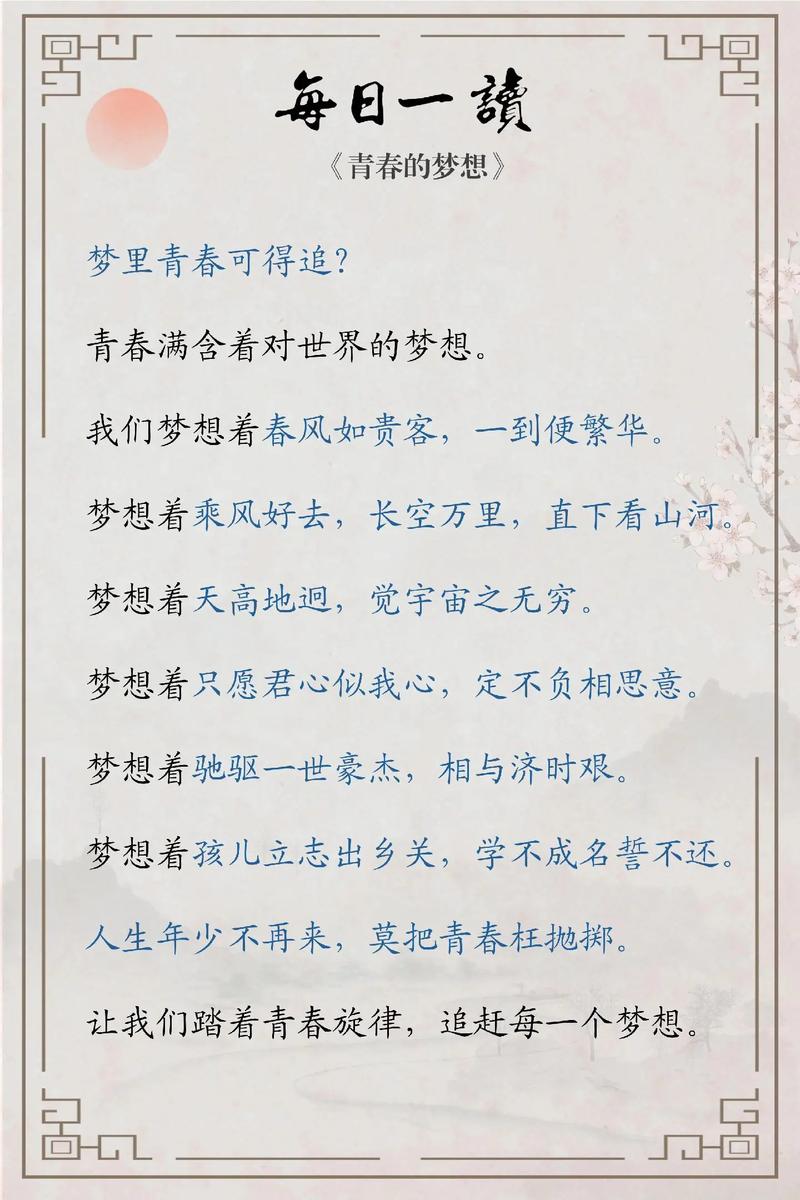 每日一讀
《青春的梦想》
梦里青春可得追？
青春满含着对世界的梦想。
我们梦想着春风如贵客，一到便繁华。
梦想着乘风好去，长空万里，直下看山河。
梦想着天高地迥，觉宇宙之无穷。
梦想着只愿君心似我心，定不负相思意。
梦想着驰驱一世豪杰，相与济时艰。
梦想着孩儿立志出乡关，学不成名誓不还。
人生年少不再来，莫把青春枉抛掷。
让我们踏着青春旋律，追赶每一个梦想。